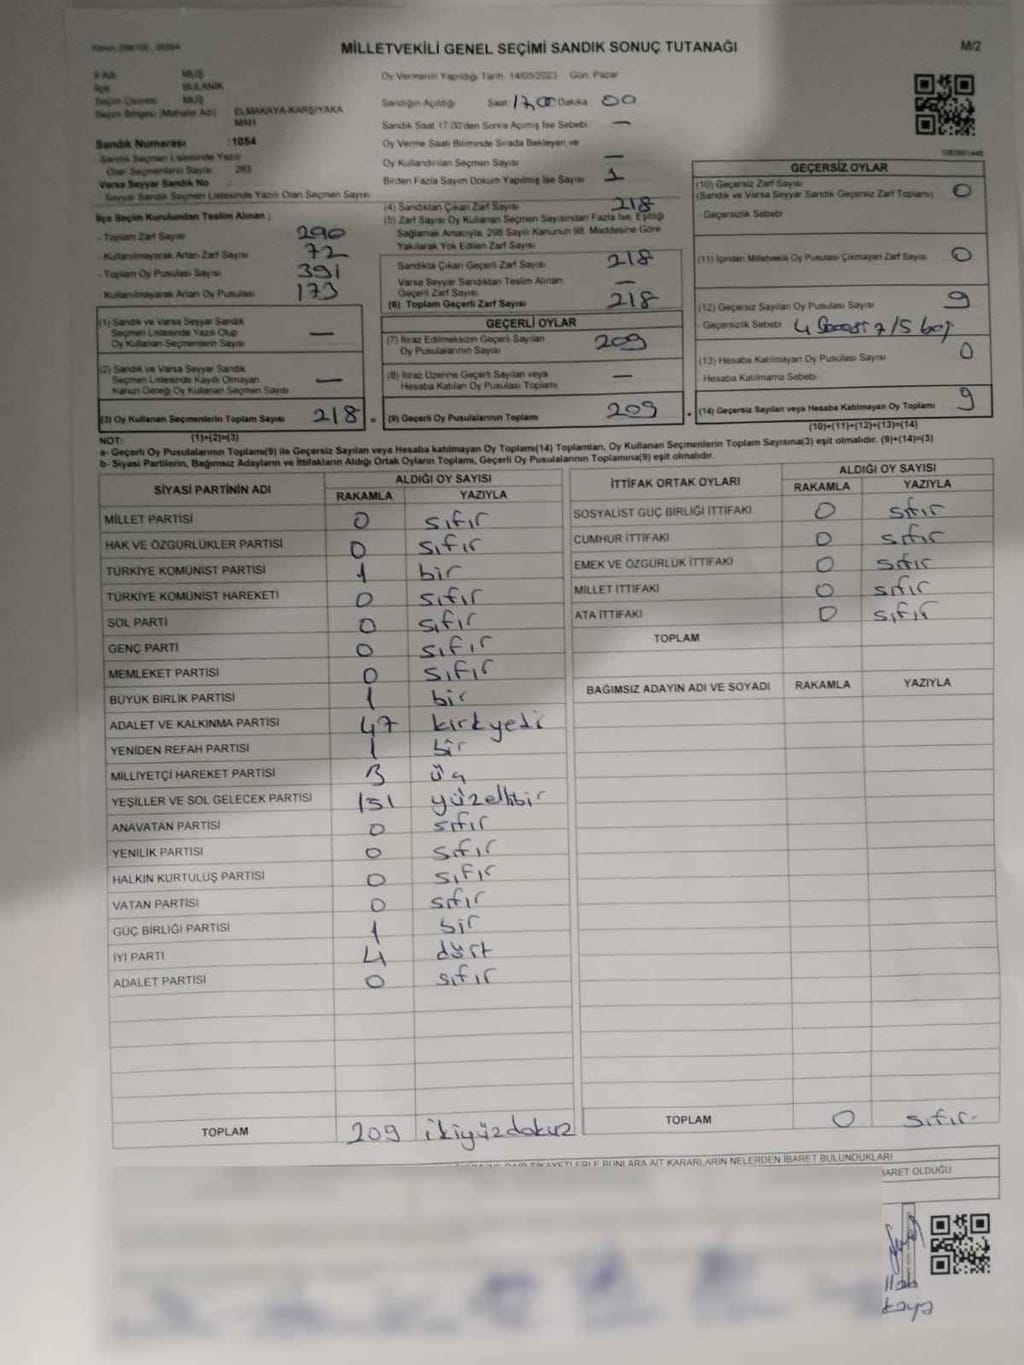 MİLLETVEKİLİ GENEL SEÇİMİ SANDIK SONUÇ TUTANAĞI
M/2
İl Adı MUŞ
İlçe BULANIK
Seçim Çevresi MUŞ
Seçim Bölgesi (Mahalle Adı) ELMAKAYA-KARŞIYAKA MAH
Sandık Numarası :1054
Sandık Seçmen Listesinde Yazılı
Olan Seçmenlerin Sayısı 283
Varsa Seyyar Sandık No :
Seyyar Sandık Seçmen Listesinde Yazılı Olan Seçmen Sayısı
İlçe Seçim Kurulundan Teslim Alınan ;
- Toplam Zarf Sayısı 290
- Kullanılmayarak Artan Zarf Sayısı 72
- Toplam Oy Pusulası Sayısı 391
- Kullanılmayarak Artan Oy Pusulası 173
(1) Sandık ve Varsa Seyyar Sandık
Seçmen Listesinde Yazılı Olup
Oy Kullanan Seçmenlerin Sayısı —
(2) Sandık ve Varsa Seyyar Sandık
Seçmen Listesinde Kayıtlı Olmayan
Kanun Gereği Oy Kullanan Seçmen Sayısı —
(3) Oy Kullanan Seçmenlerin Toplam Sayısı 218 =
(1)+(2)=(3)
Oy Vermenin Yapıldığı Tarih: 14/05/2023 Gün: Pazar
Sandığın Açıldığı Saat 17,00 Dakika 00
Sandık Saat 17:00'den Sonra Açılmış İse Sebebi —
Oy Verme Saati Bitiminde Sırada Bekleyen ve
Oy Kullandırılan Seçmen Sayısı —
Birden Fazla Sayım Döküm Yapılmış İse Sayısı 1
(4) Sandıktan Çıkan Zarf Sayısı 218
(5) Zarf Sayısı Oy Kullanan Seçmen Sayısından Fazla İse, Eşitliği
Sağlamak Amacıyla, 298 Sayılı Kanunun 98. Maddesine Göre
Yakılarak Yok Edilen Zarf Sayısı
Sandıkta Çıkan Geçerli Zarf Sayısı 218
Varsa Seyyar Sandıktan Teslim Alınan
Geçerli Zarf Sayısı —
(6) Toplam Geçerli Zarf Sayısı 218
GEÇERLİ OYLAR
(7) İtiraz Edilmeksizin Geçerli Sayılan
Oy Pusulalarının Sayısı 209
(8) İtiraz Üzerine Geçerli Sayılan veya
Hesaba Katılan Oy Pusulası Toplamı —
(9) Geçerli Oy Pusulalarının Toplamı 209
GEÇERSİZ OYLAR
(10) Geçersiz Zarf Sayısı
(Sandık ve Varsa Seyyar Sandık Geçersiz Zarf Toplamı) 0
- Geçersizlik Sebebi
(11) İçinden Milletvekili Oy Pusulası Çıkmayan Zarf Sayısı 0
(12) Geçersiz Sayılan Oy Pusulası Sayısı 9
- Geçersizlik Sebebi 4 /5 boş
(13) Hesaba Katılmayan Oy Pusulası Sayısı 0
Hesaba Katılmama Sebebi
(14) Geçersiz Sayılan veya Hesaba Katılmayan Oy Toplamı 9
(10)+(11)+(12)+(13)=(14)
NOT:
a- Geçerli Oy Pusulalarının Toplamı(9) ile Geçersiz Sayılan veya Hesaba katılmayan Oy Toplamı(14) Toplamları, Oy Kullanan Seçmenlerin Toplam Sayısına(3) eşit olmalıdır. (9)+(14)=(3)
b- Siyasi Partilerin, Bağımsız Adayların ve İttifakların Aldığı Ortak Oyların Toplamı, Geçerli Oy Pusulalarının Toplamına(9) eşit olmalıdır.
SİYASİ PARTİNİN ADI ALDIĞI OY SAYISI
RAKAMLA YAZIYLA
MİLLET PARTİSİ 0 sıfır
HAK VE ÖZGÜRLÜKLER PARTİSİ 0 sıfır
TÜRKİYE KOMÜNİST PARTİSİ 1 bir
TÜRKİYE KOMÜNİST HAREKETİ 0 sıfır
SOL PARTİ 0 sıfır
GENÇ PARTİ 0 sıfır
MEMLEKET PARTİSİ 0 sıfır
BÜYÜK BİRLİK PARTİSİ 1 bir
ADALET VE KALKINMA PARTİSİ 47 kırkyedi
YENİDEN REFAH PARTİSİ 1 bir
MİLLİYETÇİ HAREKET PARTİSİ 3 üç
YEŞİLLER VE SOL GELECEK PARTİSİ 151 yüzellibir
ANAVATAN PARTİSİ 0 sıfır
YENİLİK PARTİSİ 0 sıfır
HALKIN KURTULUŞ PARTİSİ 0 sıfır
VATAN PARTİSİ 0 sıfır
GÜÇ BİRLİĞİ PARTİSİ 1 bir
İYİ PARTİ 4 dört
ADALET PARTİSİ 0 sıfır
TOPLAM 209 ikiyüzdokuz
İTTİFAK ORTAK OYLARI ALDIĞI OY SAYISI
RAKAMLA YAZIYLA
SOSYALİST GÜÇ BİRLİĞİ İTTİFAKI 0 sıfır
CUMHUR İTTİFAKI 0 sıfır
EMEK VE ÖZGÜRLÜK İTTİFAKI 0 sıfır
MİLLET İTTİFAKI 0 sıfır
ATA İTTİFAKI 0 sıfır
TOPLAM
BAĞIMSIZ ADAYIN ADI VE SOYADI RAKAMLA YAZIYLA
TOPLAM 0 sıfır
ŞİKAYETLERLE BUNLARA AİT KARARLARIN NELERDEN İBARET BULUNDUKLARI
İBARET OLDUĞU
kaya